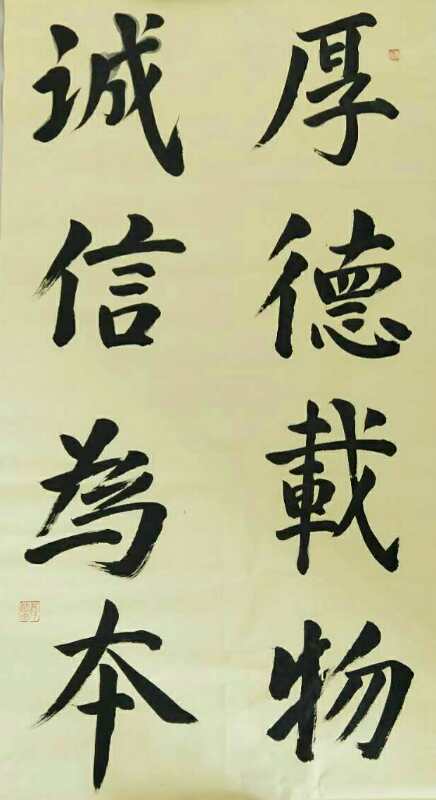 厚德載物
诚信為本